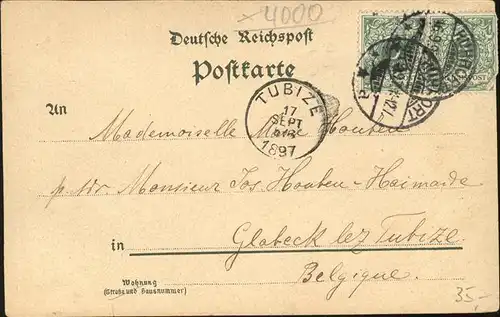 4000
Deutsche Reichspost
Postkarte
TUBIZE
17
SEPT
1897
An
Mademoiselle Marie Houben
p. adr. Monsieur Jos. Houben-Heimarde
in Glabeck lez Tubize.
Belgique.
Wohnung
(Straße und Hausnummer)
35,-